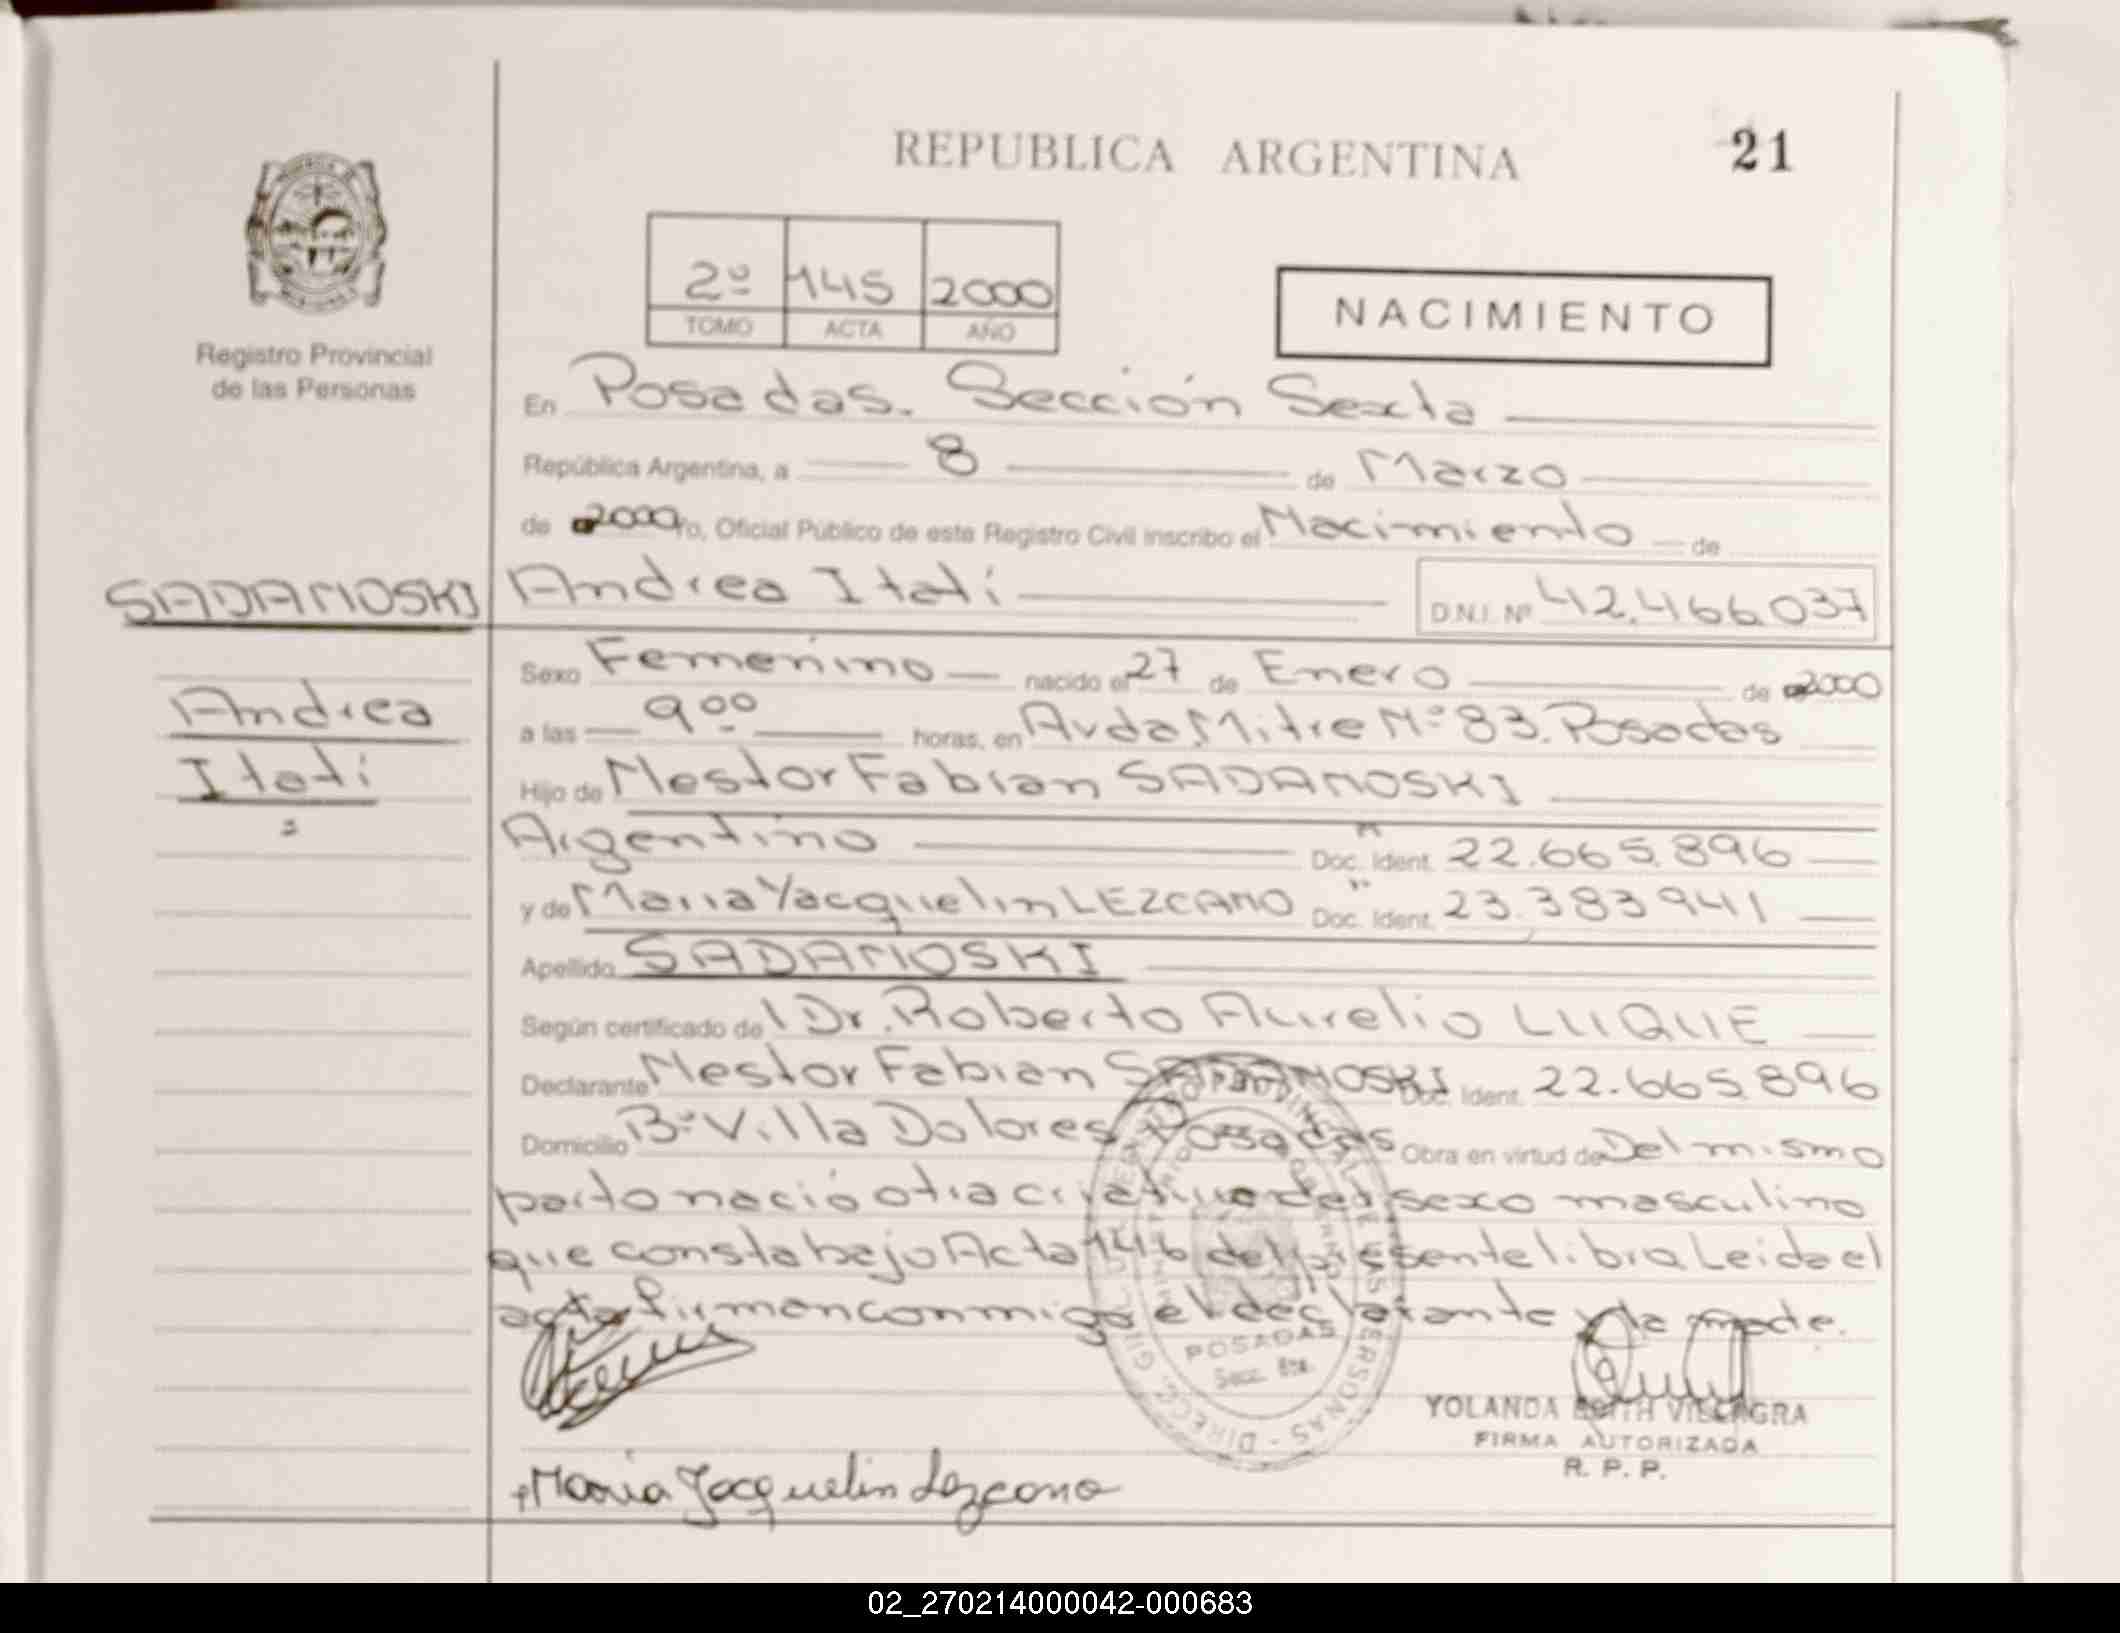 REPUBLICA ARGENTINA
21
2º 145 2000
TOMO ACTA AÑO
NACIMIENTO
Registro Provincial
de las Personas
En Posadas. Sección Sexta
República Argentina, a 8 de Marzo
de 2000 Yo, Oficial Público de este Registro Civil inscribo el Nacimiento de
SADANOSKI Andrea Itatí D.N.I. Nº 42.466.037
Sexo Femenino nacido el 27 de Enero de 2000
Andrea
a las 9 00 horas, en Avda. Mitre Nº 83. Posadas
Itatí
Hijo de Nestor Fabian SADANOSKI
Argentino Doc. Ident. 22.665.896
y de Maria Yacquelin LEZCANO Doc. Ident. 23.383.941
Apellido SADANOSKI
Según certificado del Dr. Roberto Aurelio LUQUE
Declarante Nestor Fabian SADANOSKI Doc. Ident. 22.665.896
Domicilio Bº Villa Dolores Posadas Obra en virtud de Del mismo
parto nació otra criatura del sexo masculino
que consta bajo Acta 146 del presente libro. Leida el
acta firman conmigo el declarante y la madre.
POSADAS
Secc. 6ta.
YOLANDA EDITH VILLAGRA
FIRMA AUTORIZADA
R. P. P.
Maria Jacquelin Lezcano
02_270214000042-000683